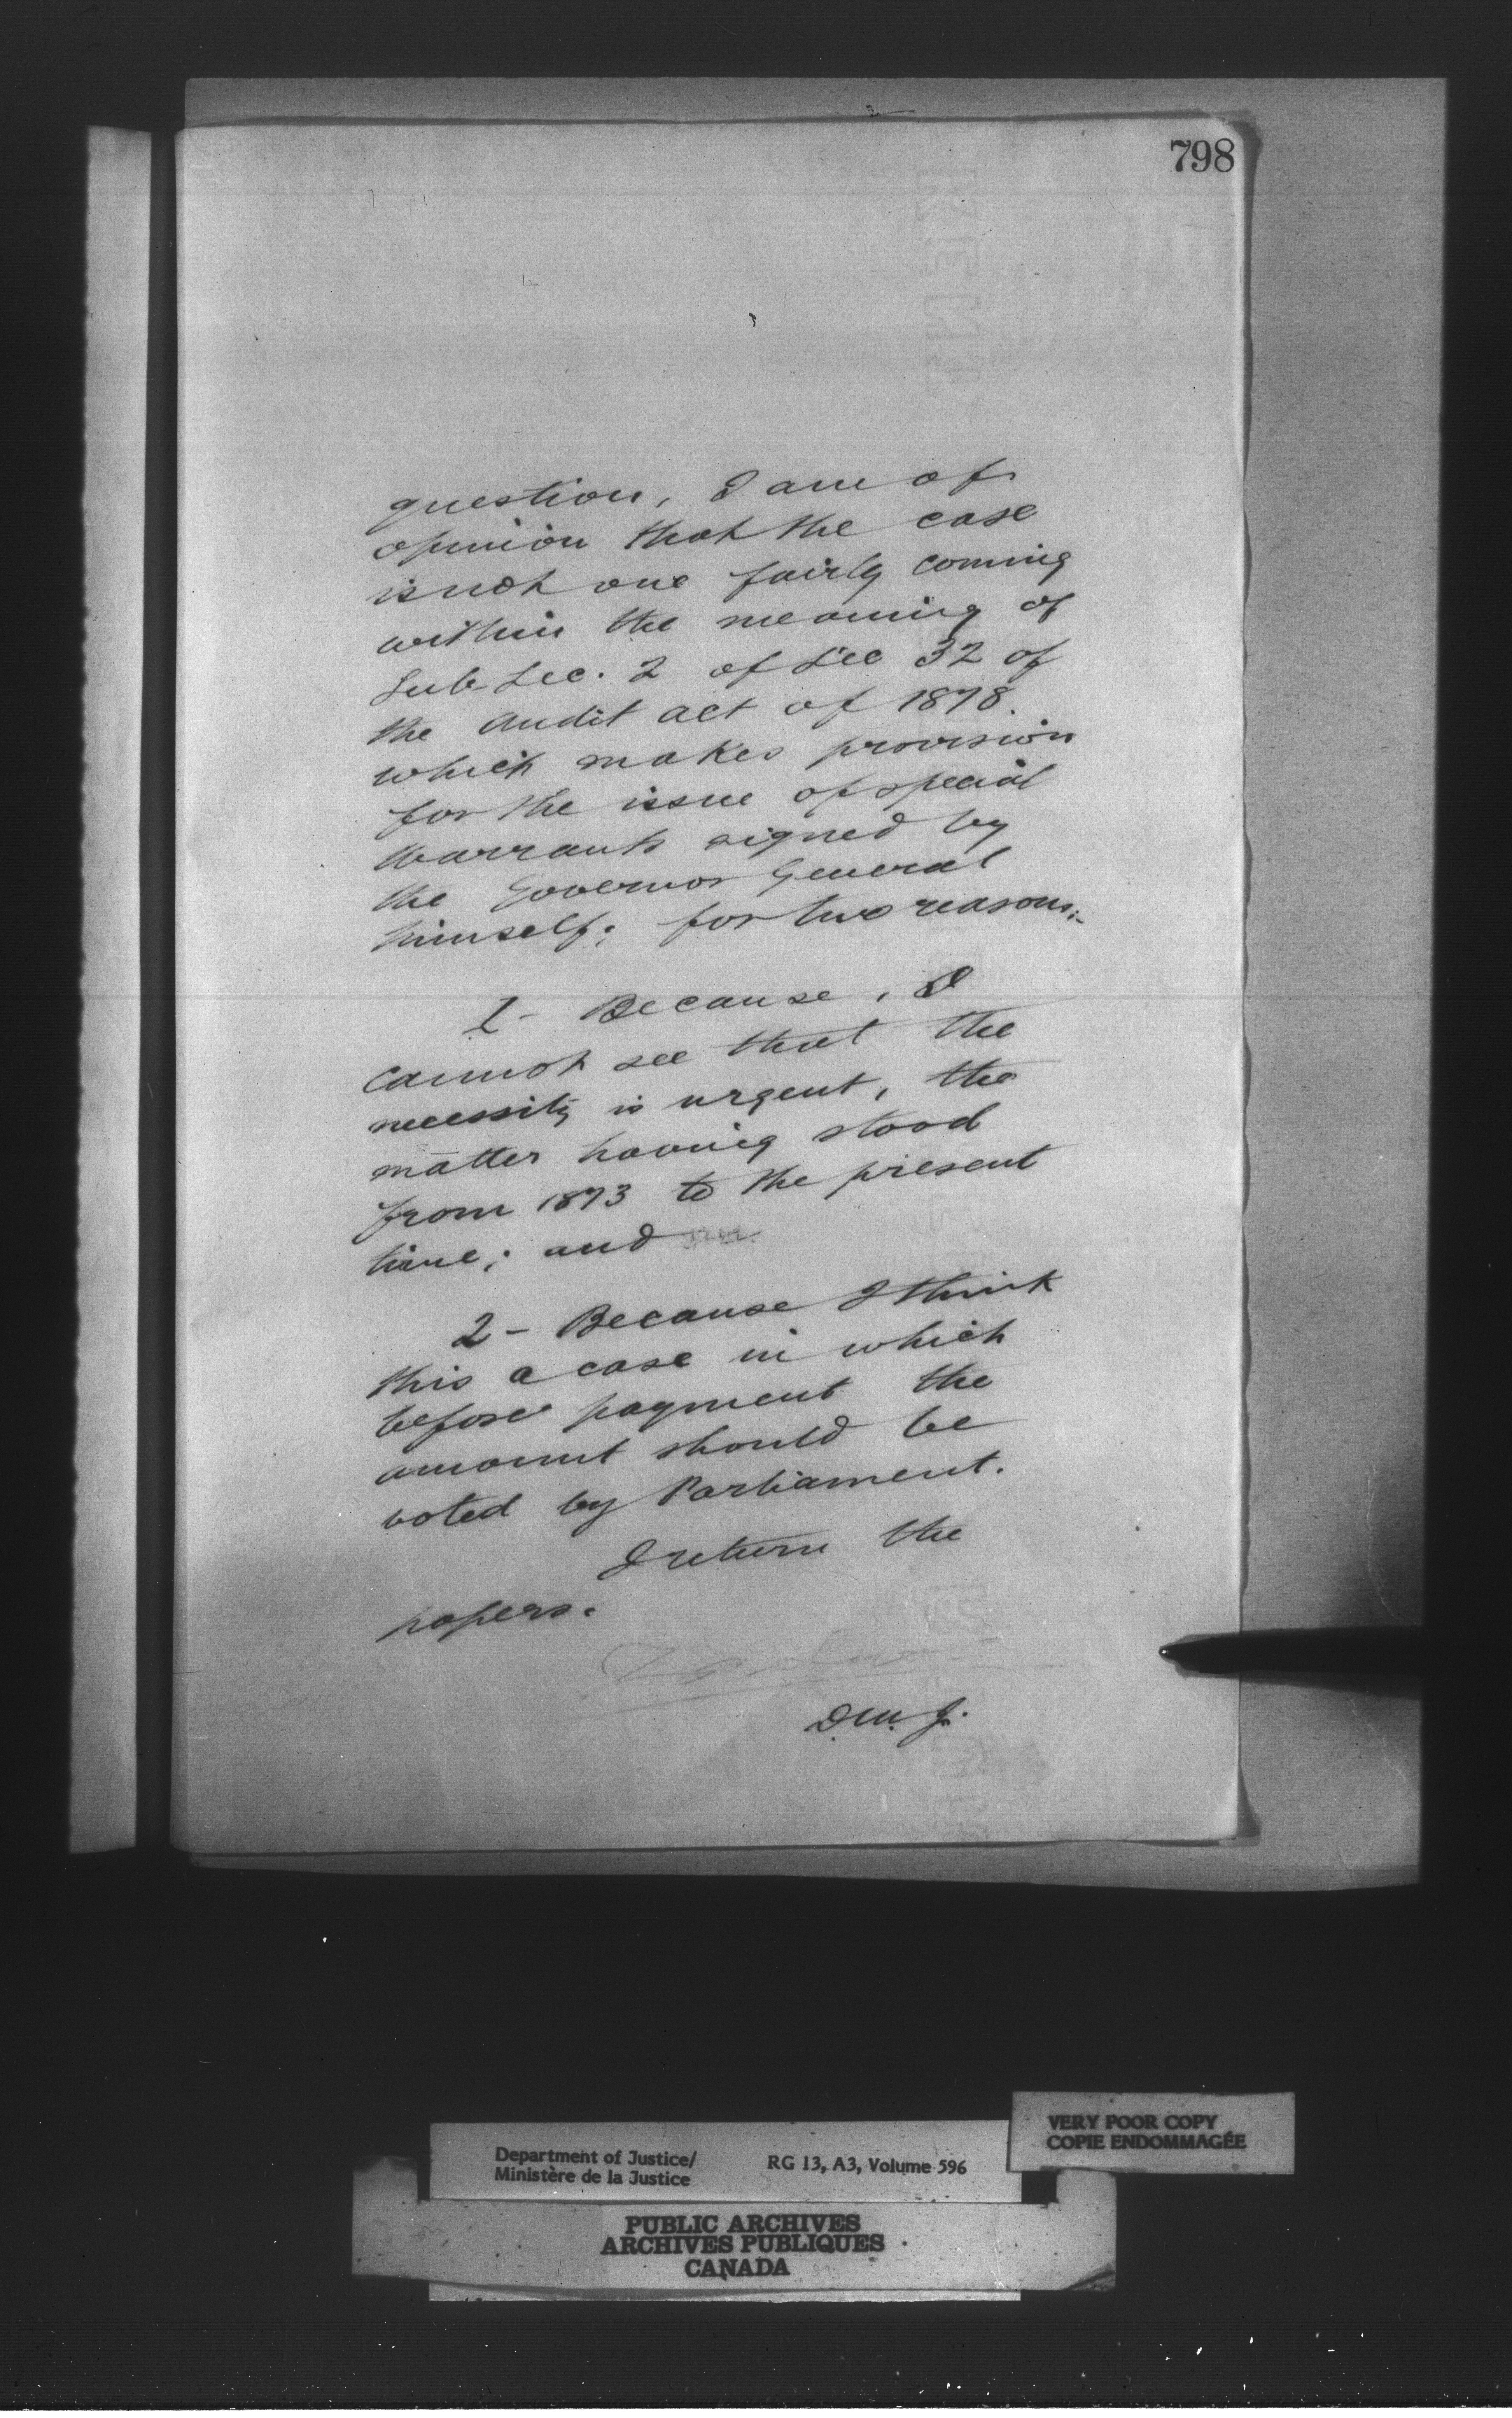 798
question, I am of
opinion that the case
is not one fairly coming
within the meaning of
Sub-Sec. 2 of Sec 32 of
the Audit Act of 1878.
which makes provision
for the issue of special
Warrants signed by
the Governor General
himself; for two reasons:-
1 - Because, I
cannot see that the
necessity is urgent, the
matter having stood
from 1873 to the present
time; and
2 - Because I think
this a case in which
before payment the
amount should be
voted by Parliament.
I return the
papers.
D.M.J.
VERY POOR COPY
COPIE ENDOMMAGÉE
Department of Justice/
Ministère de la Justice
RG 13, A3, Volume 596
PUBLIC ARCHIVES
ARCHIVES PUBLIQUES
CANADA